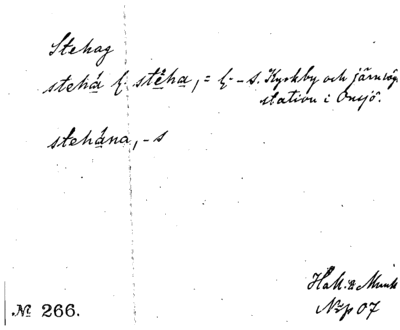 Stehag
stehá f. stēha, = f. -s. Kyrkby och järnväg
station i Onsjö.
stehána, -s
Håk. & Munk
№ 266.
Nrp 07